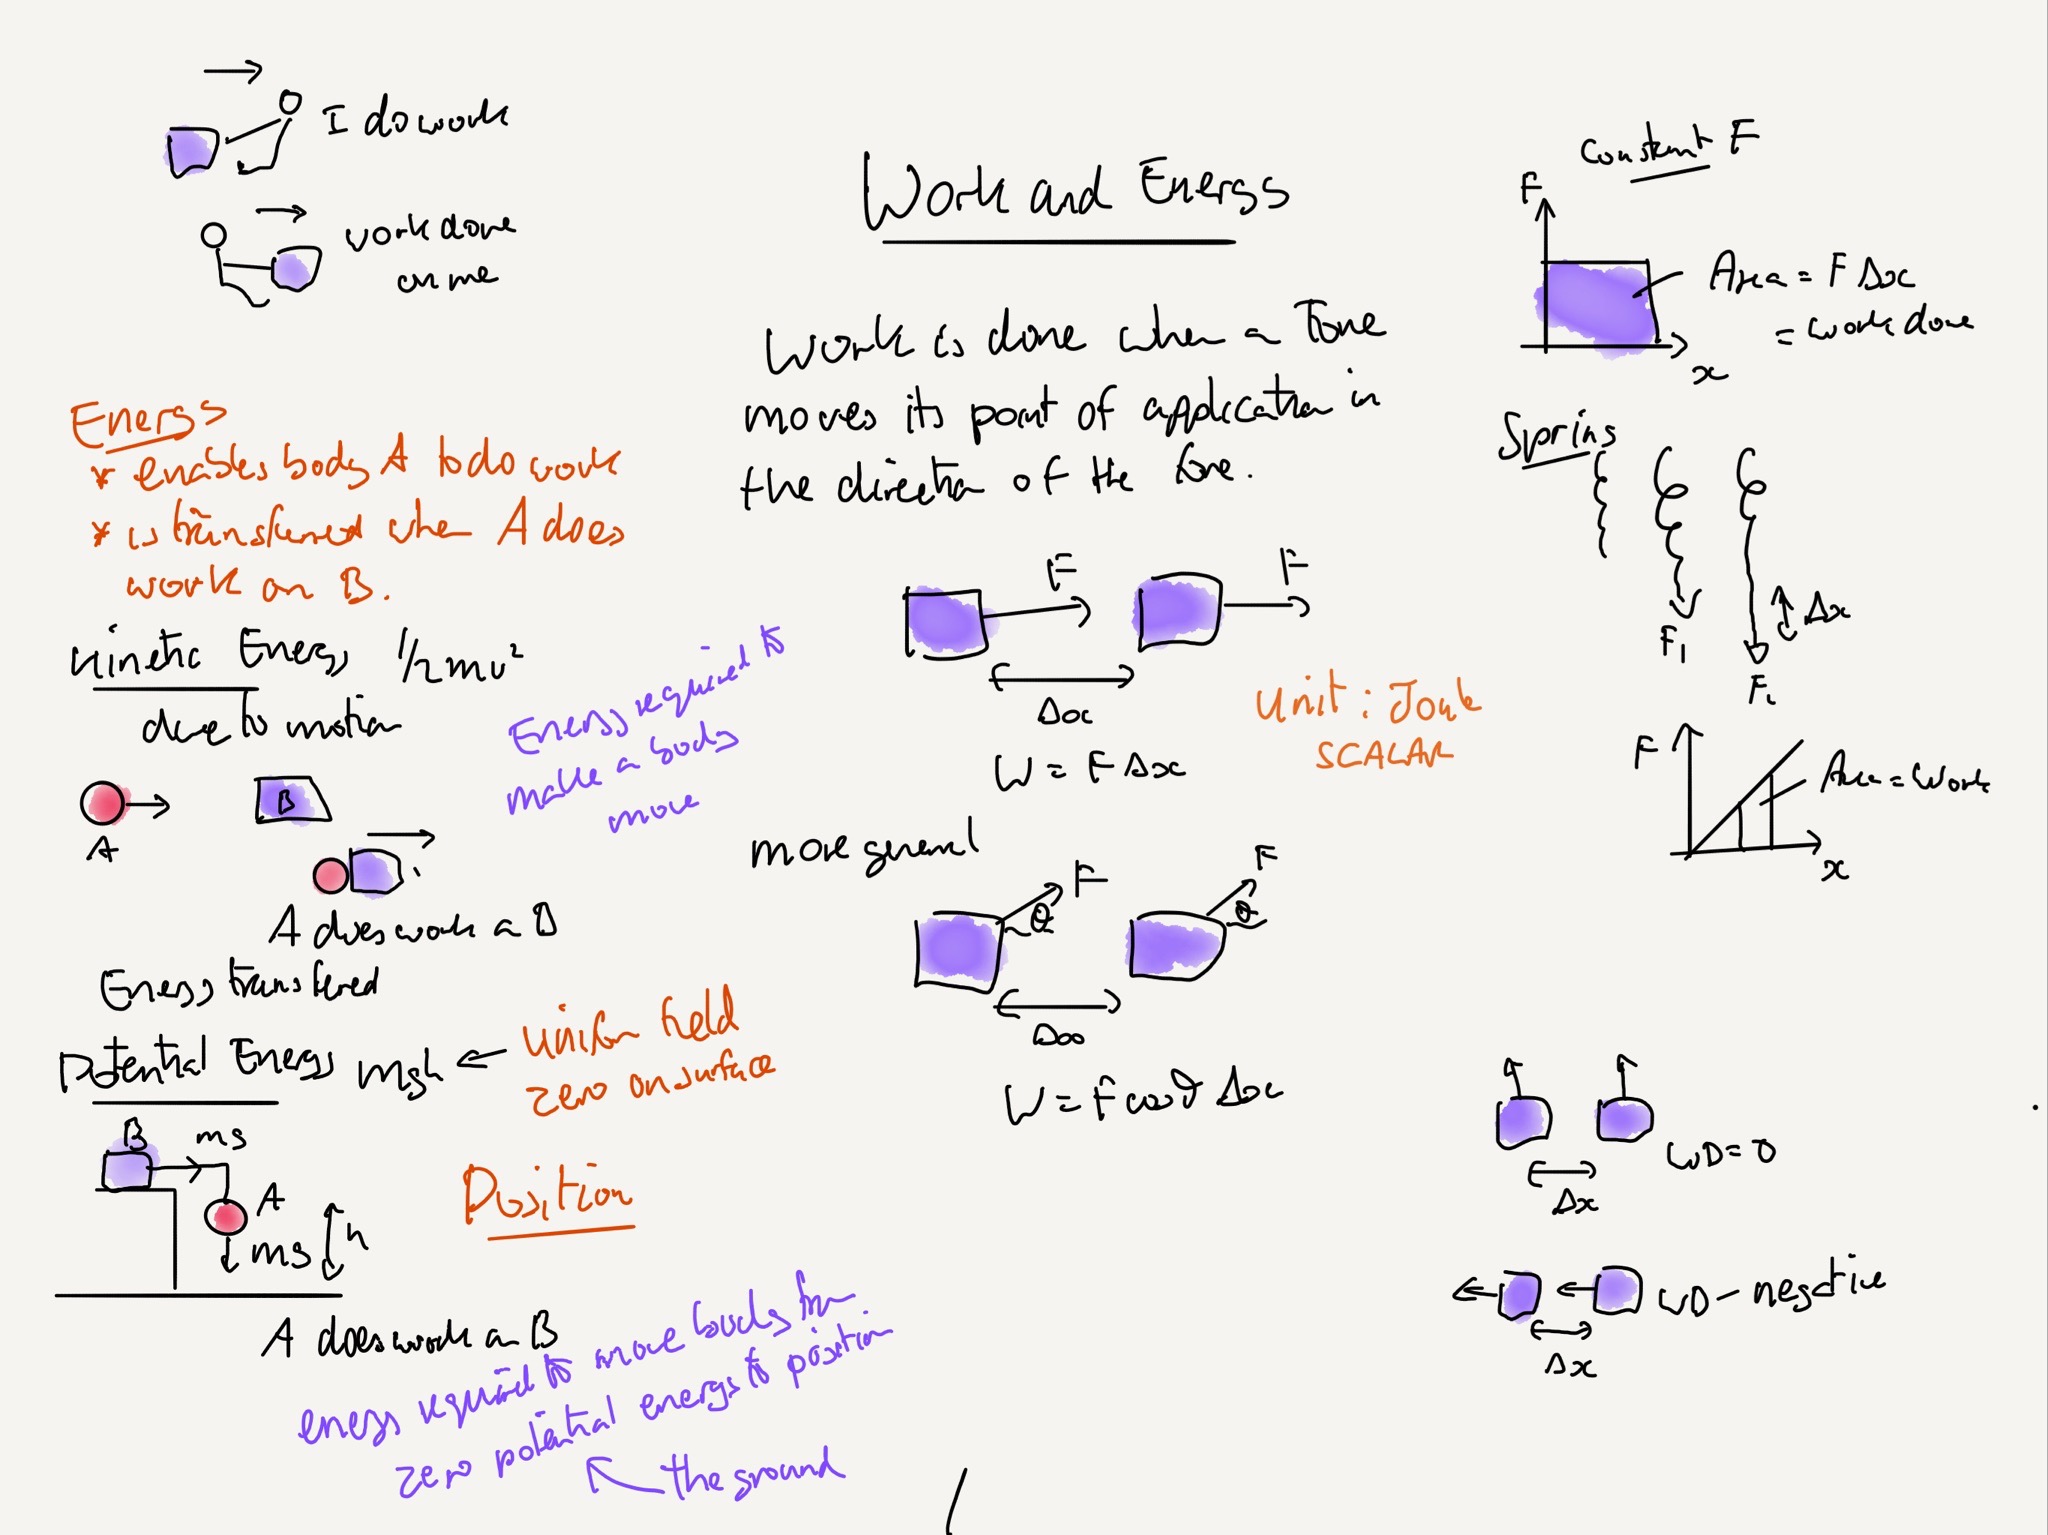 I do work
work done
on me
Work and Energy
Work is done when a Force
moves its point of application in
the direction of the force.
F
F
Δx
W = F Δx
Unit: Joule
SCALAR
more general
F
F
θ
θ
Δx
W = F cosθ Δx
Energy
* enables body A to do work
* is transferred when A does
work on B.
Kinetic Energy 1/2mv²
due to motion
Energy required to
make a body
move
A
B
A does work on B
Energy transfered
Potential Energy mgh ←
uniform field
zero on surface
B
mg
A
mg
h
Position
A does work on B
energy required to move body from
zero potential energy to position
the ground
Constant F
F
Area = F Δx
= work done
x
Spring
F₁
Δx
F
Area = Work
x
WD = 0
Δx
WD - negative
Δx